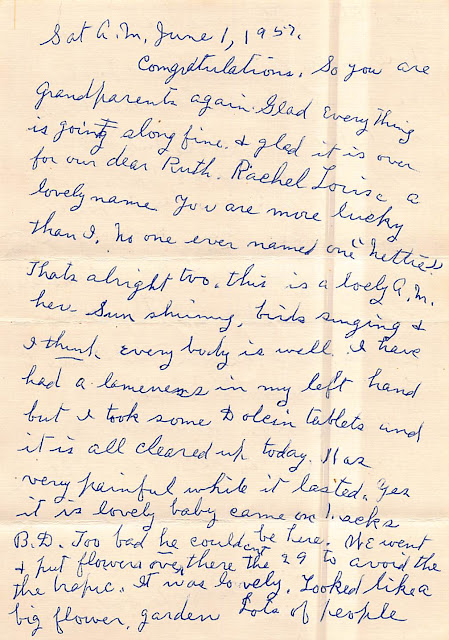 Sat A.M. June 1, 1957.
Congratulations. So you are
Grandparents again. Glad Everything
is going along fine. & glad it is over
for our dear Ruth. Rachel Louise a
lovely name You are more lucky
than I. No one ever named one "Nettie"
Thats alright too. this is a loely A.M.
her. Sun shining, birds singing &
I think every body is well. I have
had a lameness in my left hand
but I took some Dolcin tablets and
it is all cleared up today. Was
very painful while it lasted. Yes
it is lovely baby came on Macks
B.D. Too bad he couldent be here. We went
& put flowers over there the 29 to avoid the
the trafic. It was lovely. Looked like a
big flower garden Lots of people